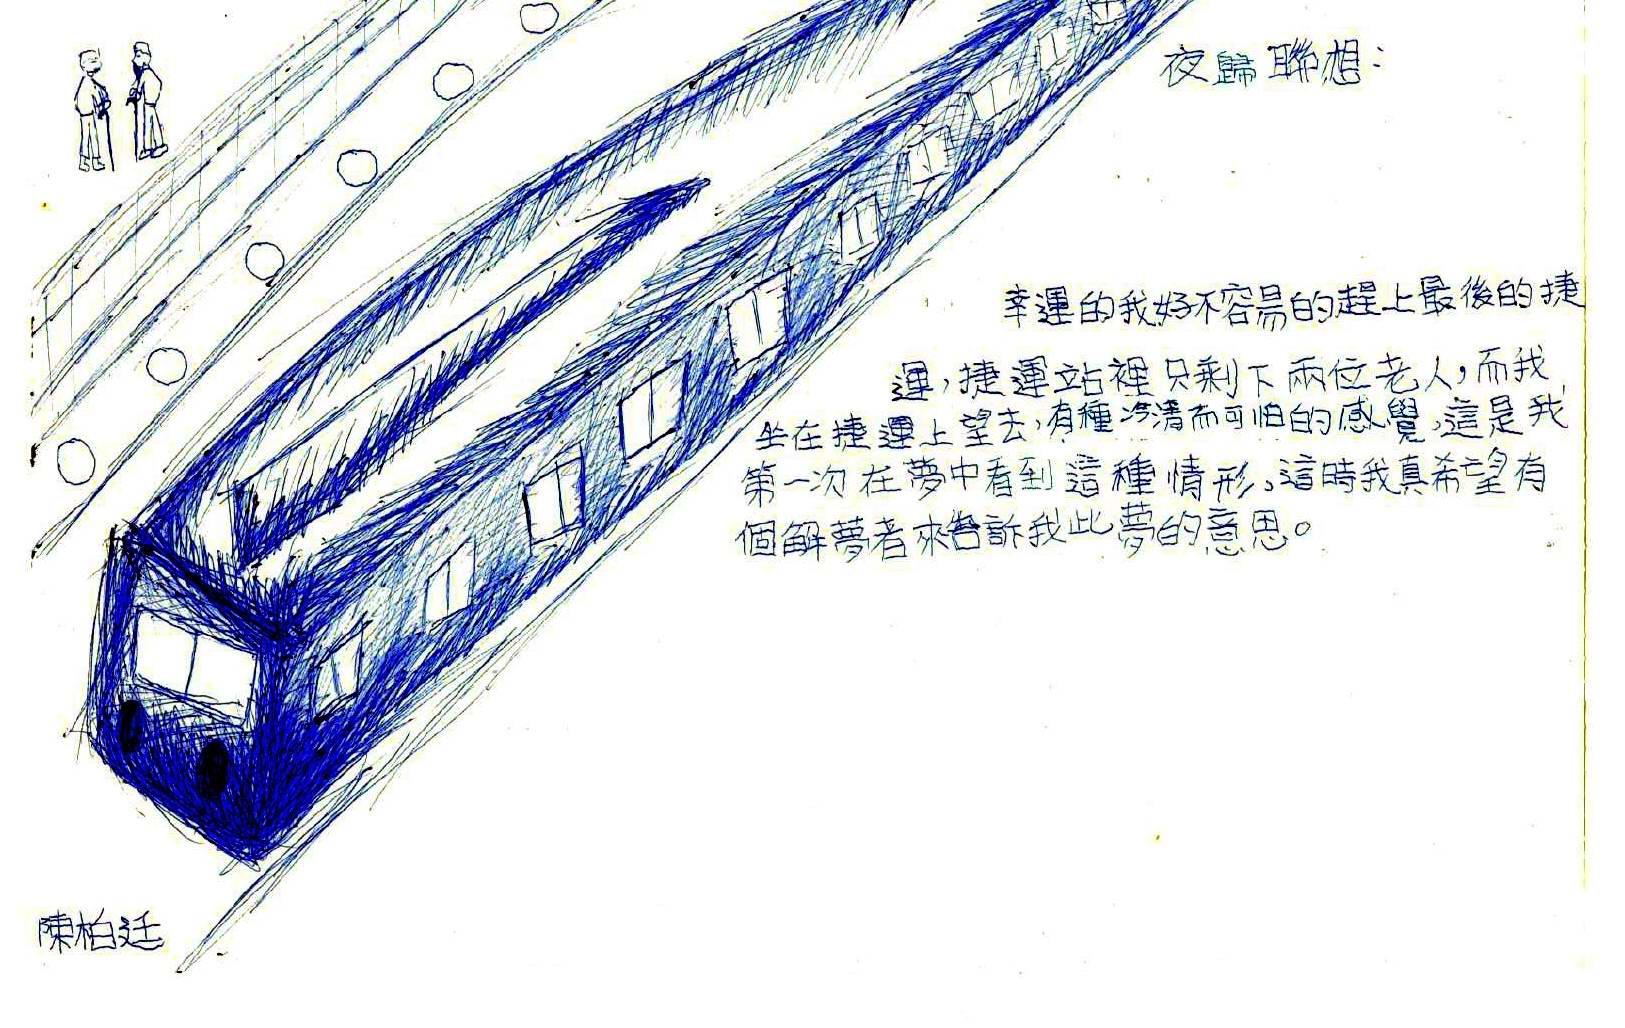 夜歸聯想：
幸運的我好不容易的趕上最後的捷
運，捷運站裡只剩下兩位老人，而我
坐在捷運上望去，有種冷清而可怕的感覺，這是我
第一次在夢中看到這種情形，這時我真希望有
個解夢者來告訴我此夢的意思。
陳柏廷